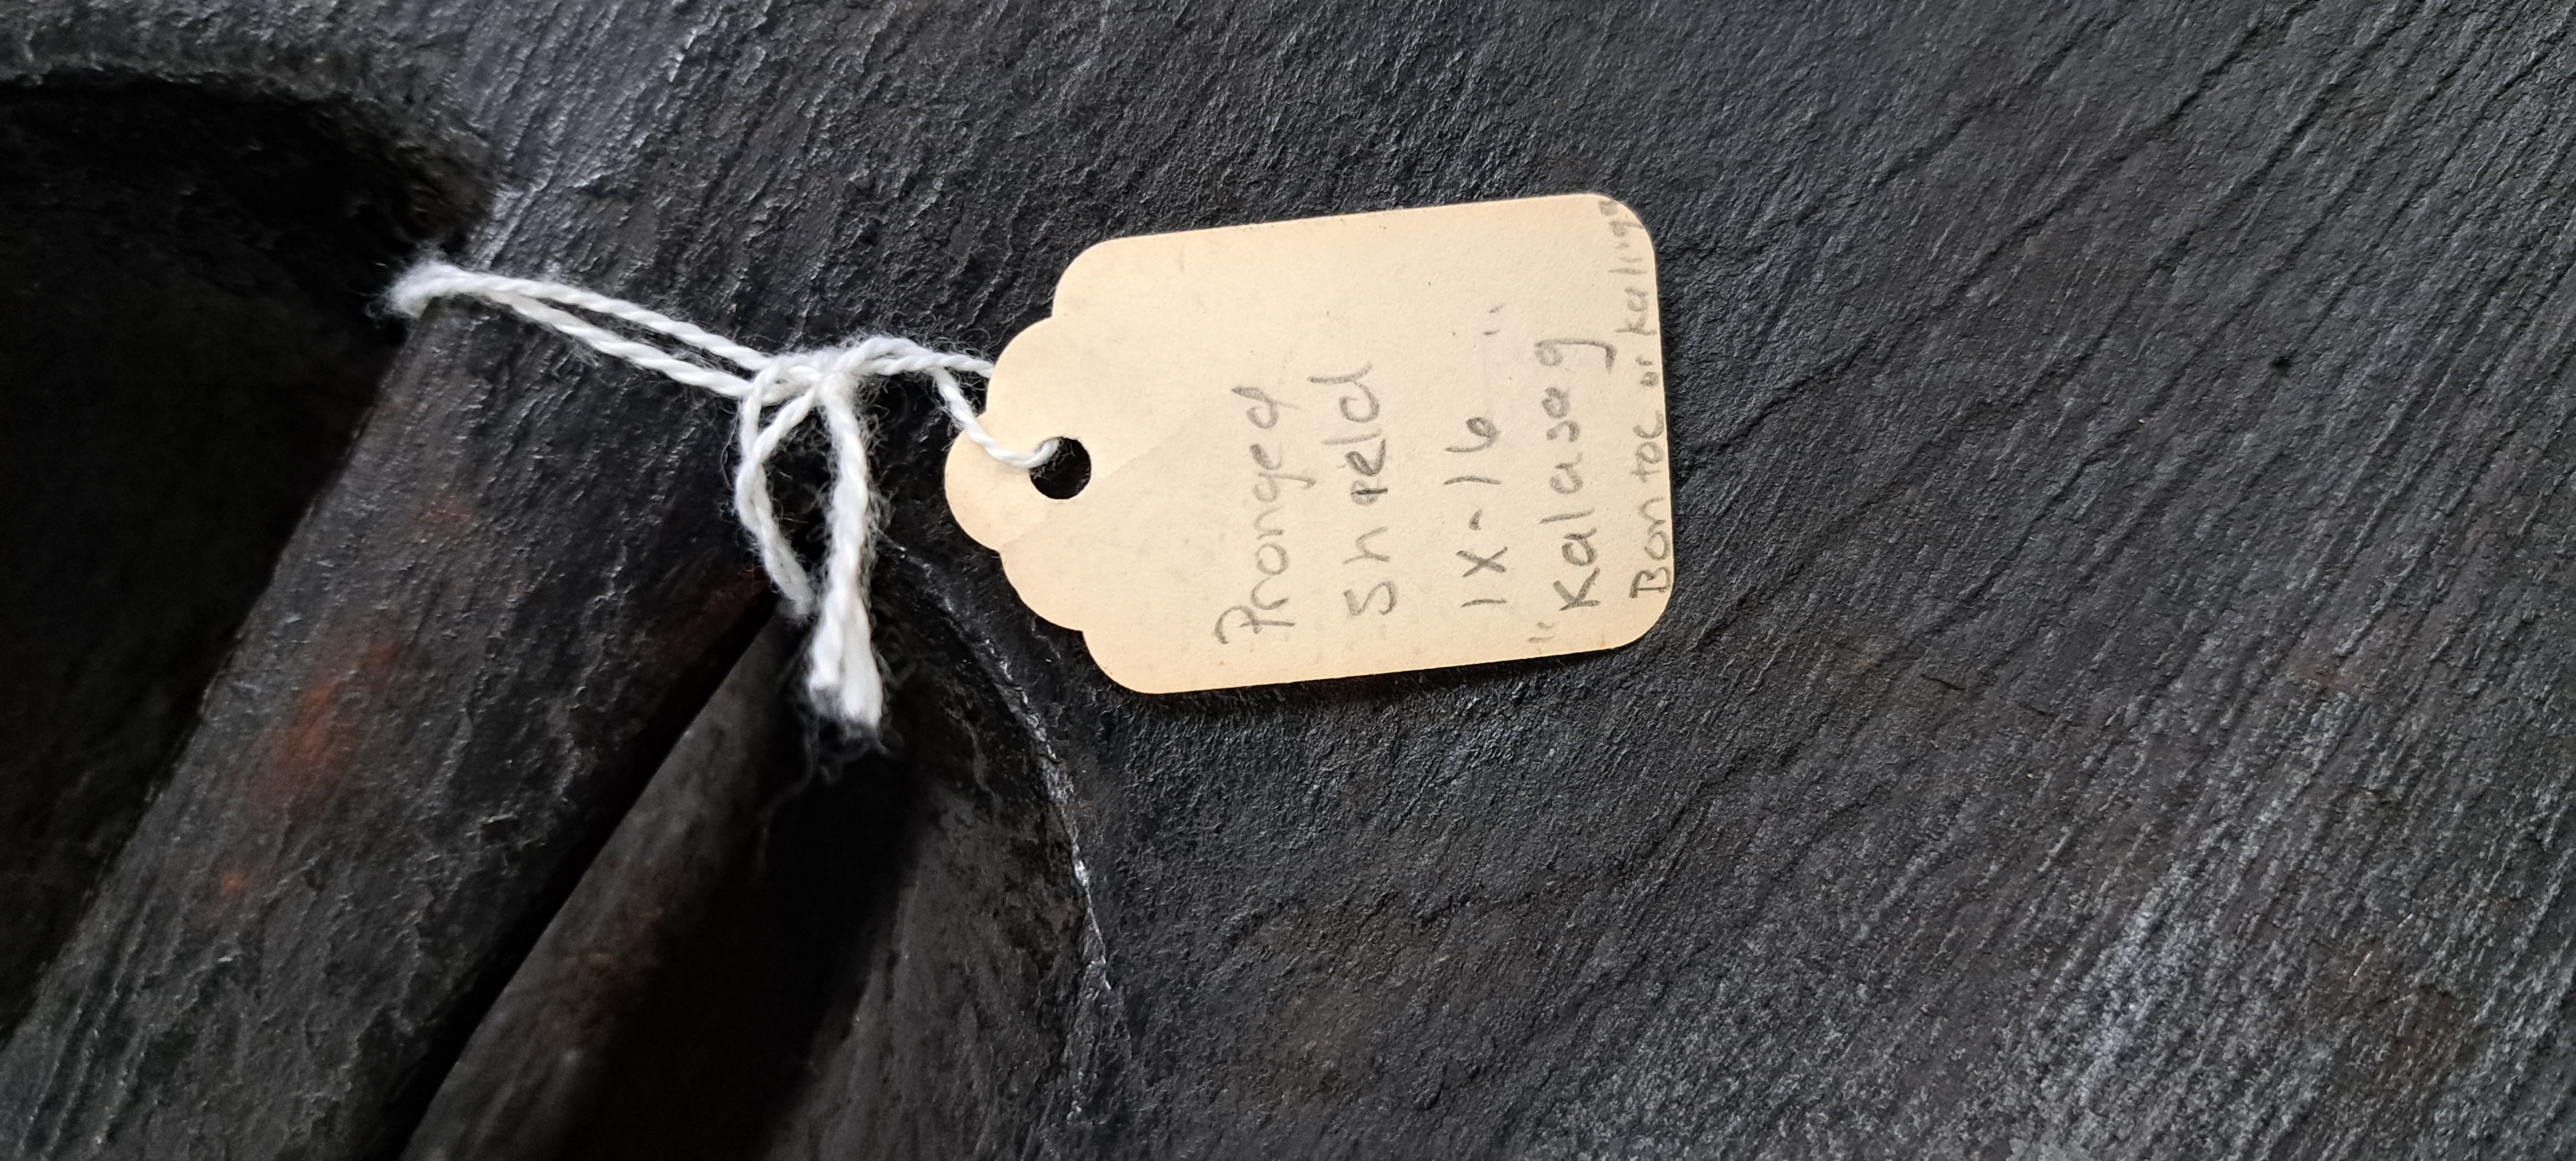 Pronged
Shield
IX-16
"Kalasag"
Bontoc or Kalinga